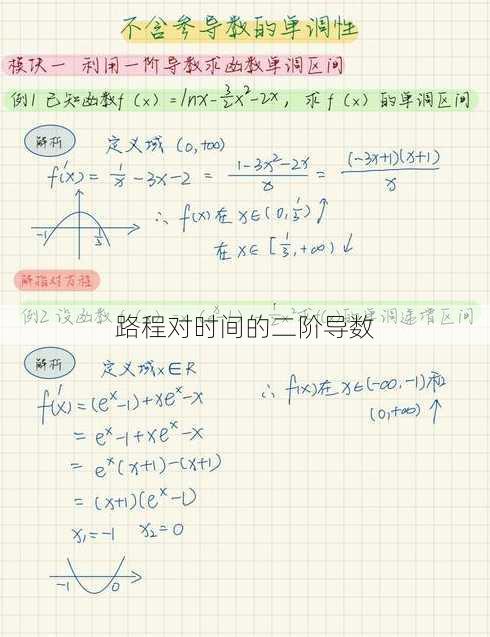 不含参导数的单调性
模块一 利用一阶导数求函数单调区间
例1 已知函数f(x)=lnx-3/2x²-2x, 求f(x)的单调区间
解析 定义域 (0,+∞)
f'(x)= 1/x -3x-2 = (1-3x²-2x)/x = (-3x+1)(x+1)/x
-1 1/3
∴ f(x)在 x∈(0,1/3)↗
在 x∈[1/3,+∞)↙
解指对方程
例2 设函数 单调递增区间
路程对时间的二阶导数
解析 定义域x∈R
f'(x)=(eˣ-1)+xeˣ-x
= eˣ-1+xeˣ-x
= eˣ(x+1)-(x+1)
= (x+1)(eˣ-1)
x₁=-1 x₂=0
-1 0
∴ f(x)在x∈(-∞,-1)和
(0,+∞)↑